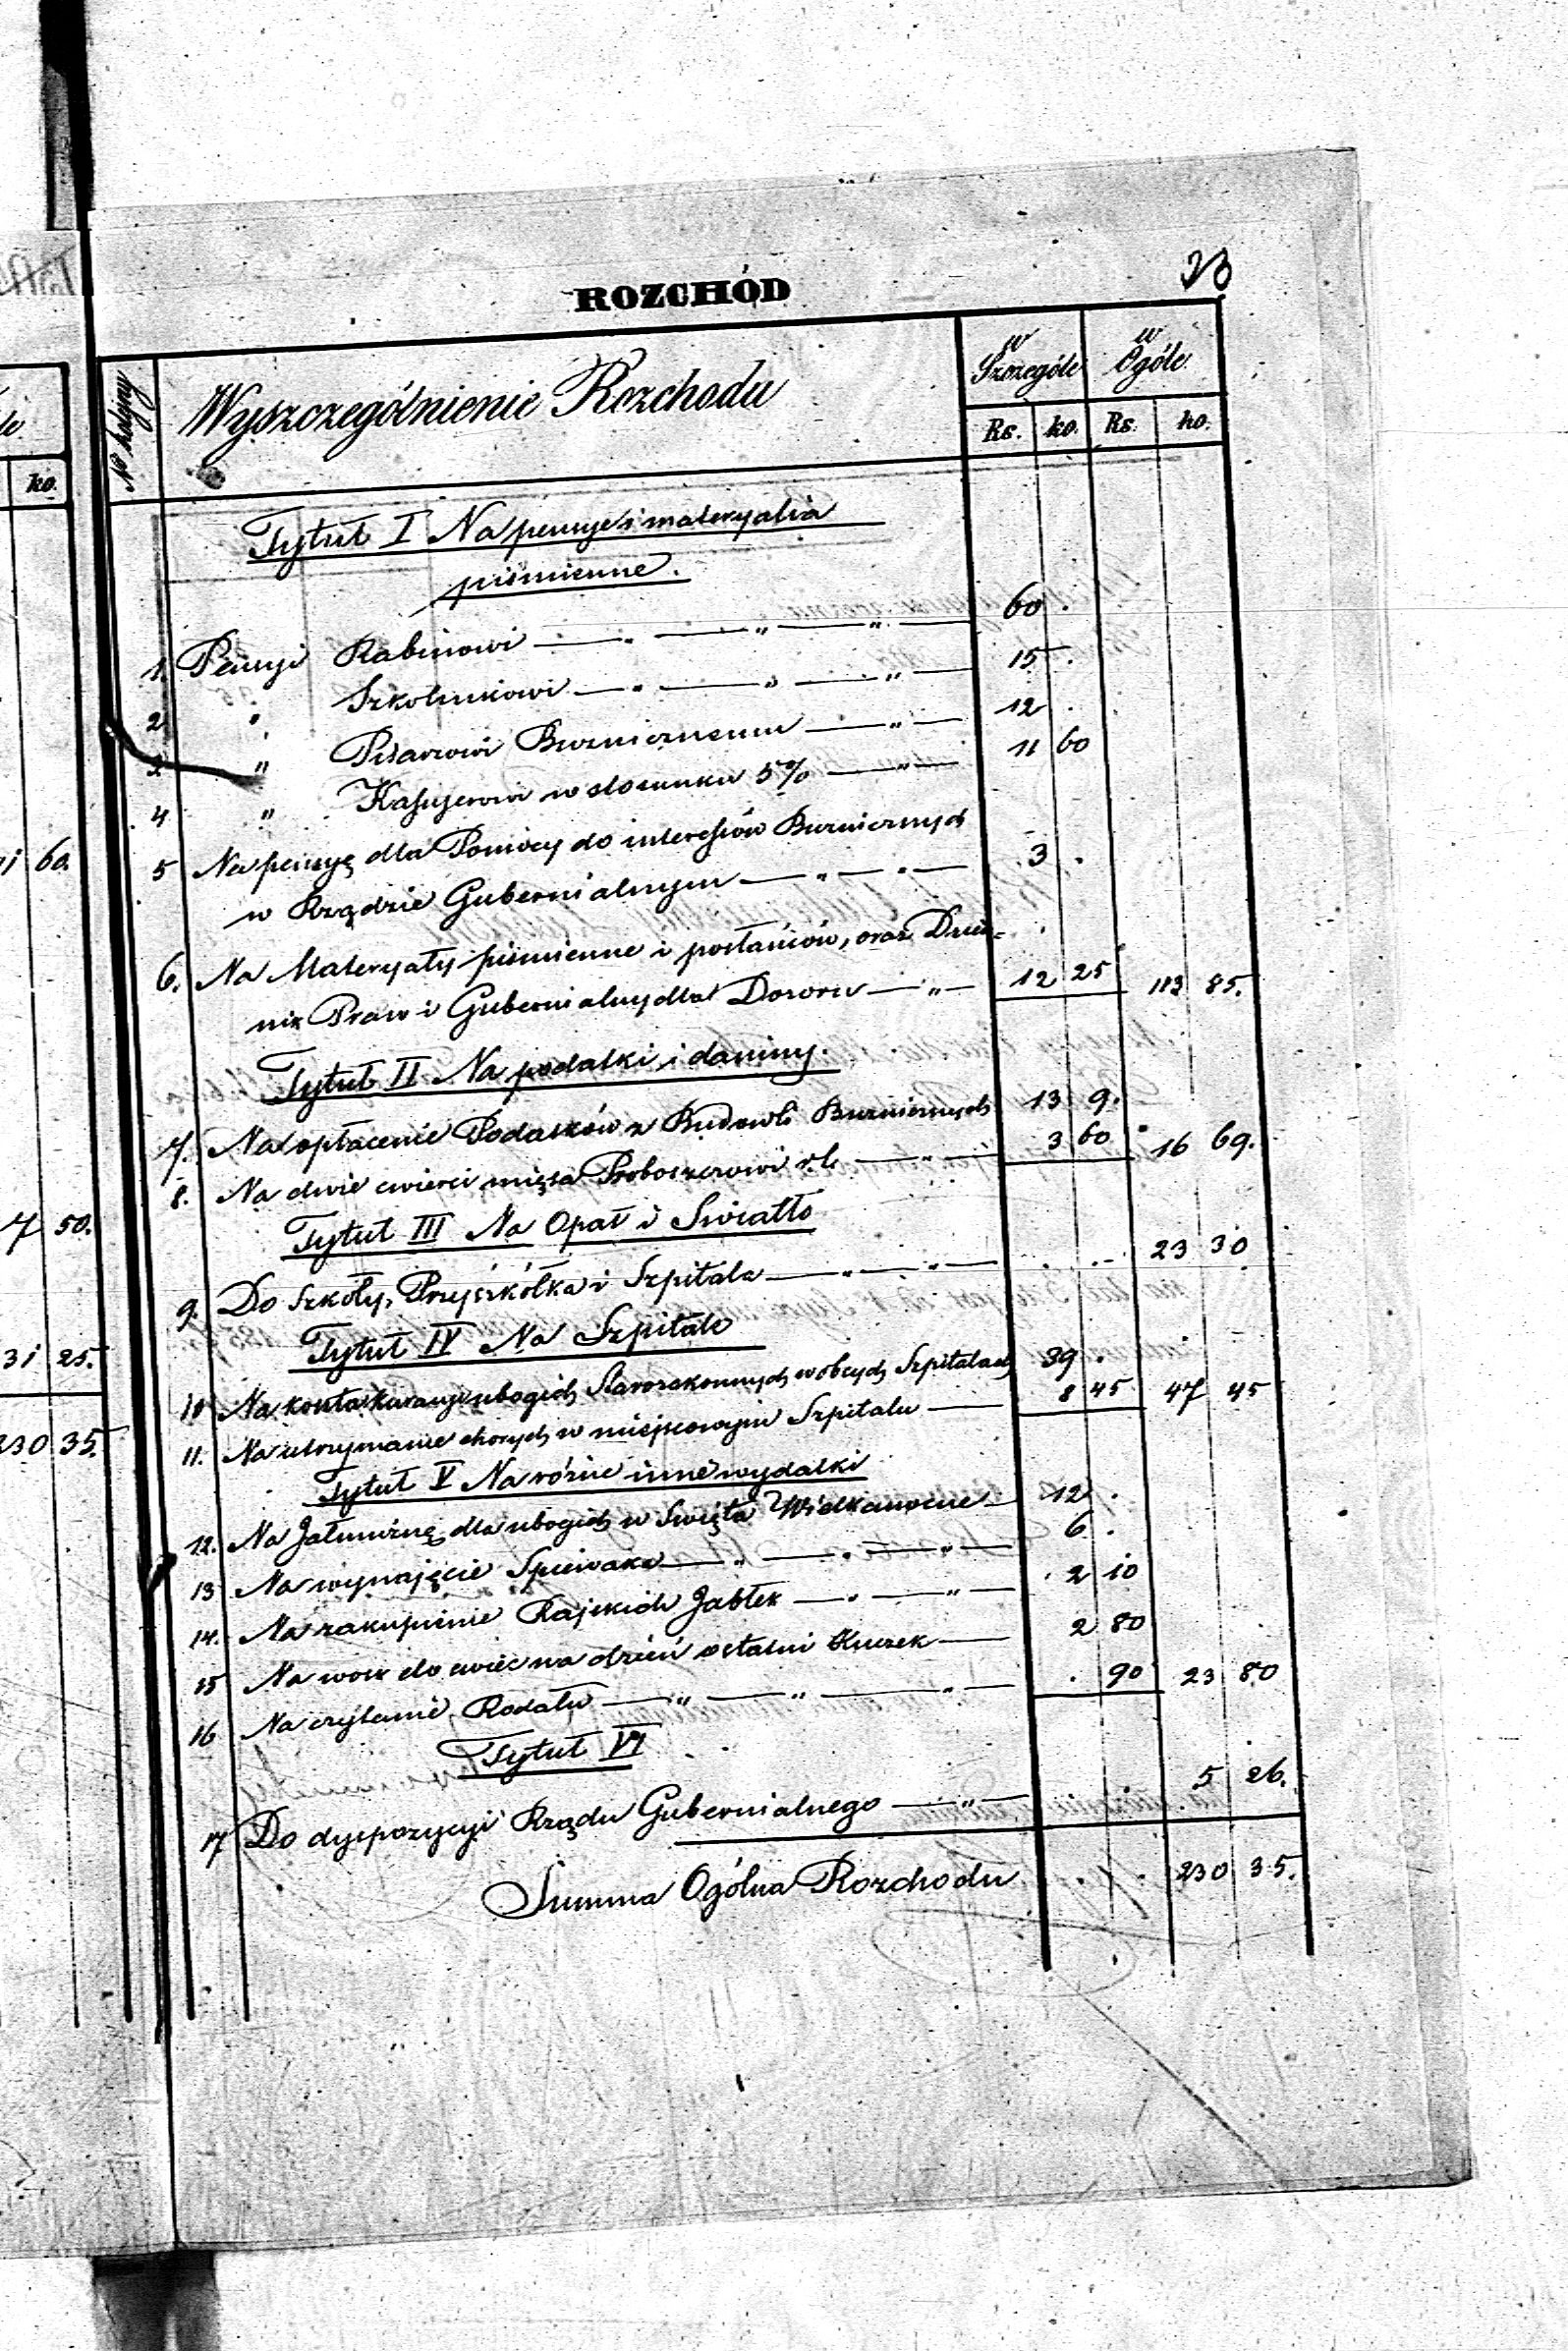 23
ROZCHÓD
№ kolejny
Wyszczególnienie Rozchodu
w Szczególe
w Ogóle
Rs. ko. Rs. ko.
Tytuł I Na pensye i materyalia
piśmienne.
1. Pensyi Rabinowi — „ — „ — „ — 60 .
2 „ Szkolnikowi — „ — „ — „ — 15 .
3 „ Pisarzowi Burzniczemu — „ — 12 .
4 „ Kassyerowi w stosunku 5% — „ — 11 60
5 Na pensyę dla Pomocy do interessów Bużnicznych
w Rządzie Gubernialnym — „ — „ — 3 .
6. Na Materyały piśmienne i posłańców, oraz Dzien=
nik Praw i Gubernialny dla Dozoru — „ — 12 25 113 85.
Tytuł II Na podatki i daniny.
7. Na opłacenie Podatków z Budowli Bużnicznych 13 9.
8. Na dwie cwierci mięsa Proboszczowi r.l. — „ — 3 60 16 69.
Tytuł III Na Opał i Swiatło
9. Do Szkoły, Przyszkółka i Szpitala — „ — „ — . . 23 30
Tytuł IV Na Szpitale
10 Na koszta kuracyi ubogich Starozakonnych w obcych Szpitalach 39 .
11. Na utrzymanie chorych w miejscowym Szpitalu — 8 45 47 45
Tytuł V Na różne inne wydatki
12. Na Jałmużnę dla ubogich w Swięta Wielkanocne — 12 .
13 Na wynajęcie Spiewaka — „ — „ — „ — 6 .
14. Na zakupienie Rajskich Jabłek — „ — „ — 2 10
15 Na wosk do swiec na dzień ostatni Kuczek — 2 80
16 Na czytanie Rodału — „ — „ — „ — . 90 23 80
Tytuł VI
17 Do dyspozycyi Rządu Gubernialnego — „ — . . 5 26.
Summa Ogólna Rozchodu . . 230 35.
ko.
60.
7 50.
31 25.
230 35.